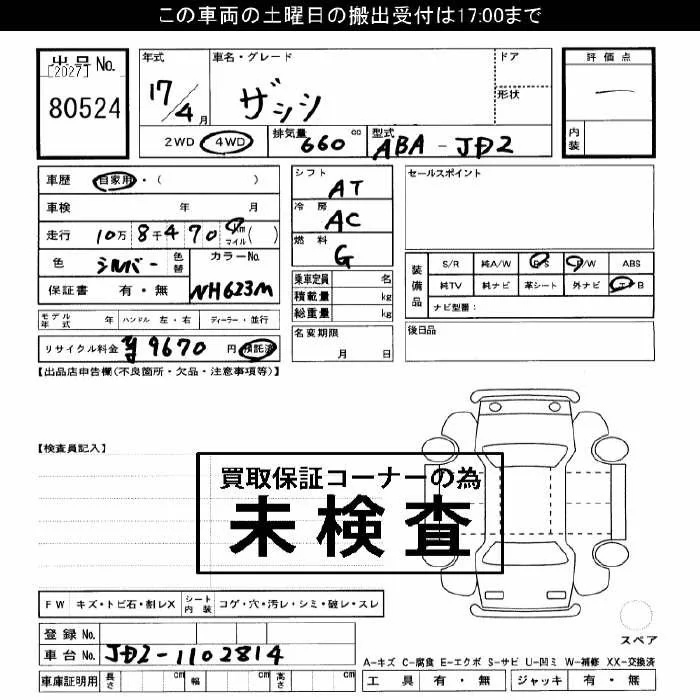 この車両の土曜日の搬出受付は17:00まで
出品号 No.
[2027]
80524
年式
17/4 月
車名・グレード
ザッツ
ドア
形状
評価点
内装
2WD 4WD
排気量 660 cc
型式 ABA-JD2
車歴 自家用・( )
車検 年 月
走行 10万 8千 470 km マイル ( )
色 シルバー 色替
カラーNo. NH623M
保証書 有・無
シフト AT
冷房 AC
燃料 G
乗車定員 名
積載量 kg
総重量 kg
名変期限 月 日
セールスポイント
装備品
S/R 純A/W P/S P/W ABS
純TV 純ナビ 革シート 外ナビ エアB
ナビ型番:
後日品
モデル年式 年 ハンドル 左・右 ディーラー・並行
リサイクル料金 ¥9670 円 預託済
【出品店申告欄(不良箇所・欠品・注意事項等)】
【検査員記入】
買取保証コーナーの為
未検査
FW キズ・トビ石・割レX シート内装 コゲ・穴・汚レ・シミ・破レ・スレ
登録 No.
車台 No. JD2-1102814
車庫証明用 長さ cm 幅 cm 高さ cm
スペア
A-キズ C-腐食 E-エクボ S-サビ U-凹ミ W-補修 XX-交換済
工具 有・無 ジャッキ 有・無